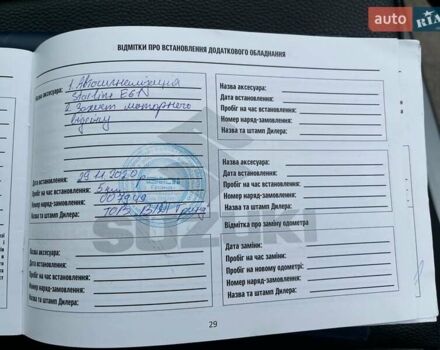 auto RIA
ВІДМІТКИ ПРО ВСТАНОВЛЕННЯ ДОДАТКОВОГО ОБЛАДНАННЯ
Назва аксесуара: 1. Автосигнализация
Starline E6N
2. Захист моторного
відсіку
Дата встановлення: 29.11.2020 р.
Пробіг на час встановлення: 5 км
Номер наряд-замовлення: 007949
Назва та штамп Дилера: ТОВ
Назва аксесуара:
Дата встановлення:
Пробіг на час встановлення:
Номер наряд-замовлення:
Назва та штамп Дилера:
Назва аксесуара:
Дата встановлення:
Пробіг на час встановлення:
Номер наряд-замовлення:
Назва та штамп Дилера:
Назва аксесуара:
Дата встановлення:
Пробіг на час встановлення:
Номер наряд-замовлення:
Назва та штамп Дилера:
Відмітка про заміну одометра
Дата заміни:
Пробіг на час заміни:
Пробіг на новому одометрі:
Номер наряд-замовлення:
Назва та штамп Дилера:
SUZUKI
29